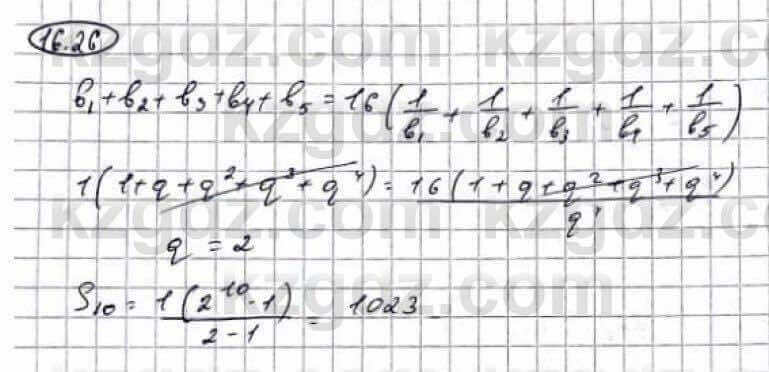 16.26
b₁+b₂+b₃+b₄+b₅=16(1/b₁+1/b₂+1/b₃+1/b₄+1/b₅)
1(1+q+q²+q³+q⁴)=16(1+q+q²+q³+q⁴)/q⁴
q=2
S₁₀=1(2¹⁰-1)/(2-1)=1023
kzgdz.com kzgdz.com
kzgdz.com kzgdz.com
kzgdz.com kzgdz.com
kzgdz.com kzgdz.com